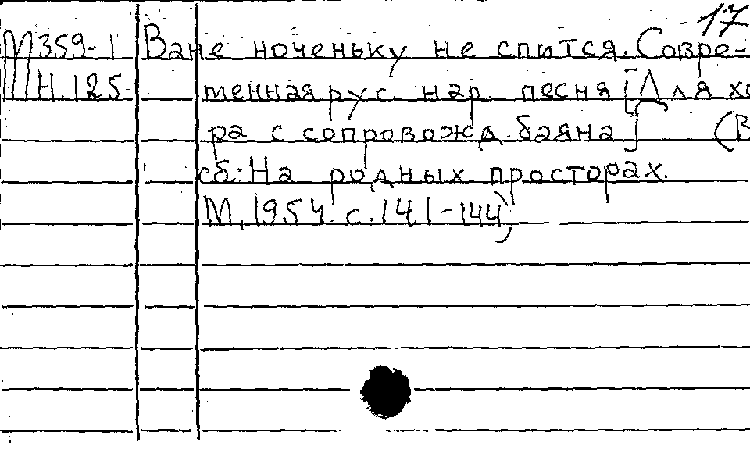 17
М359-1 Ване ноченьку не спится. Совре-
Н.125 менная рус. нар. песня [Для хо
ра с сопровожд. баяна] (В
сб: На родных просторах.
М, 1954 с. 141-144)